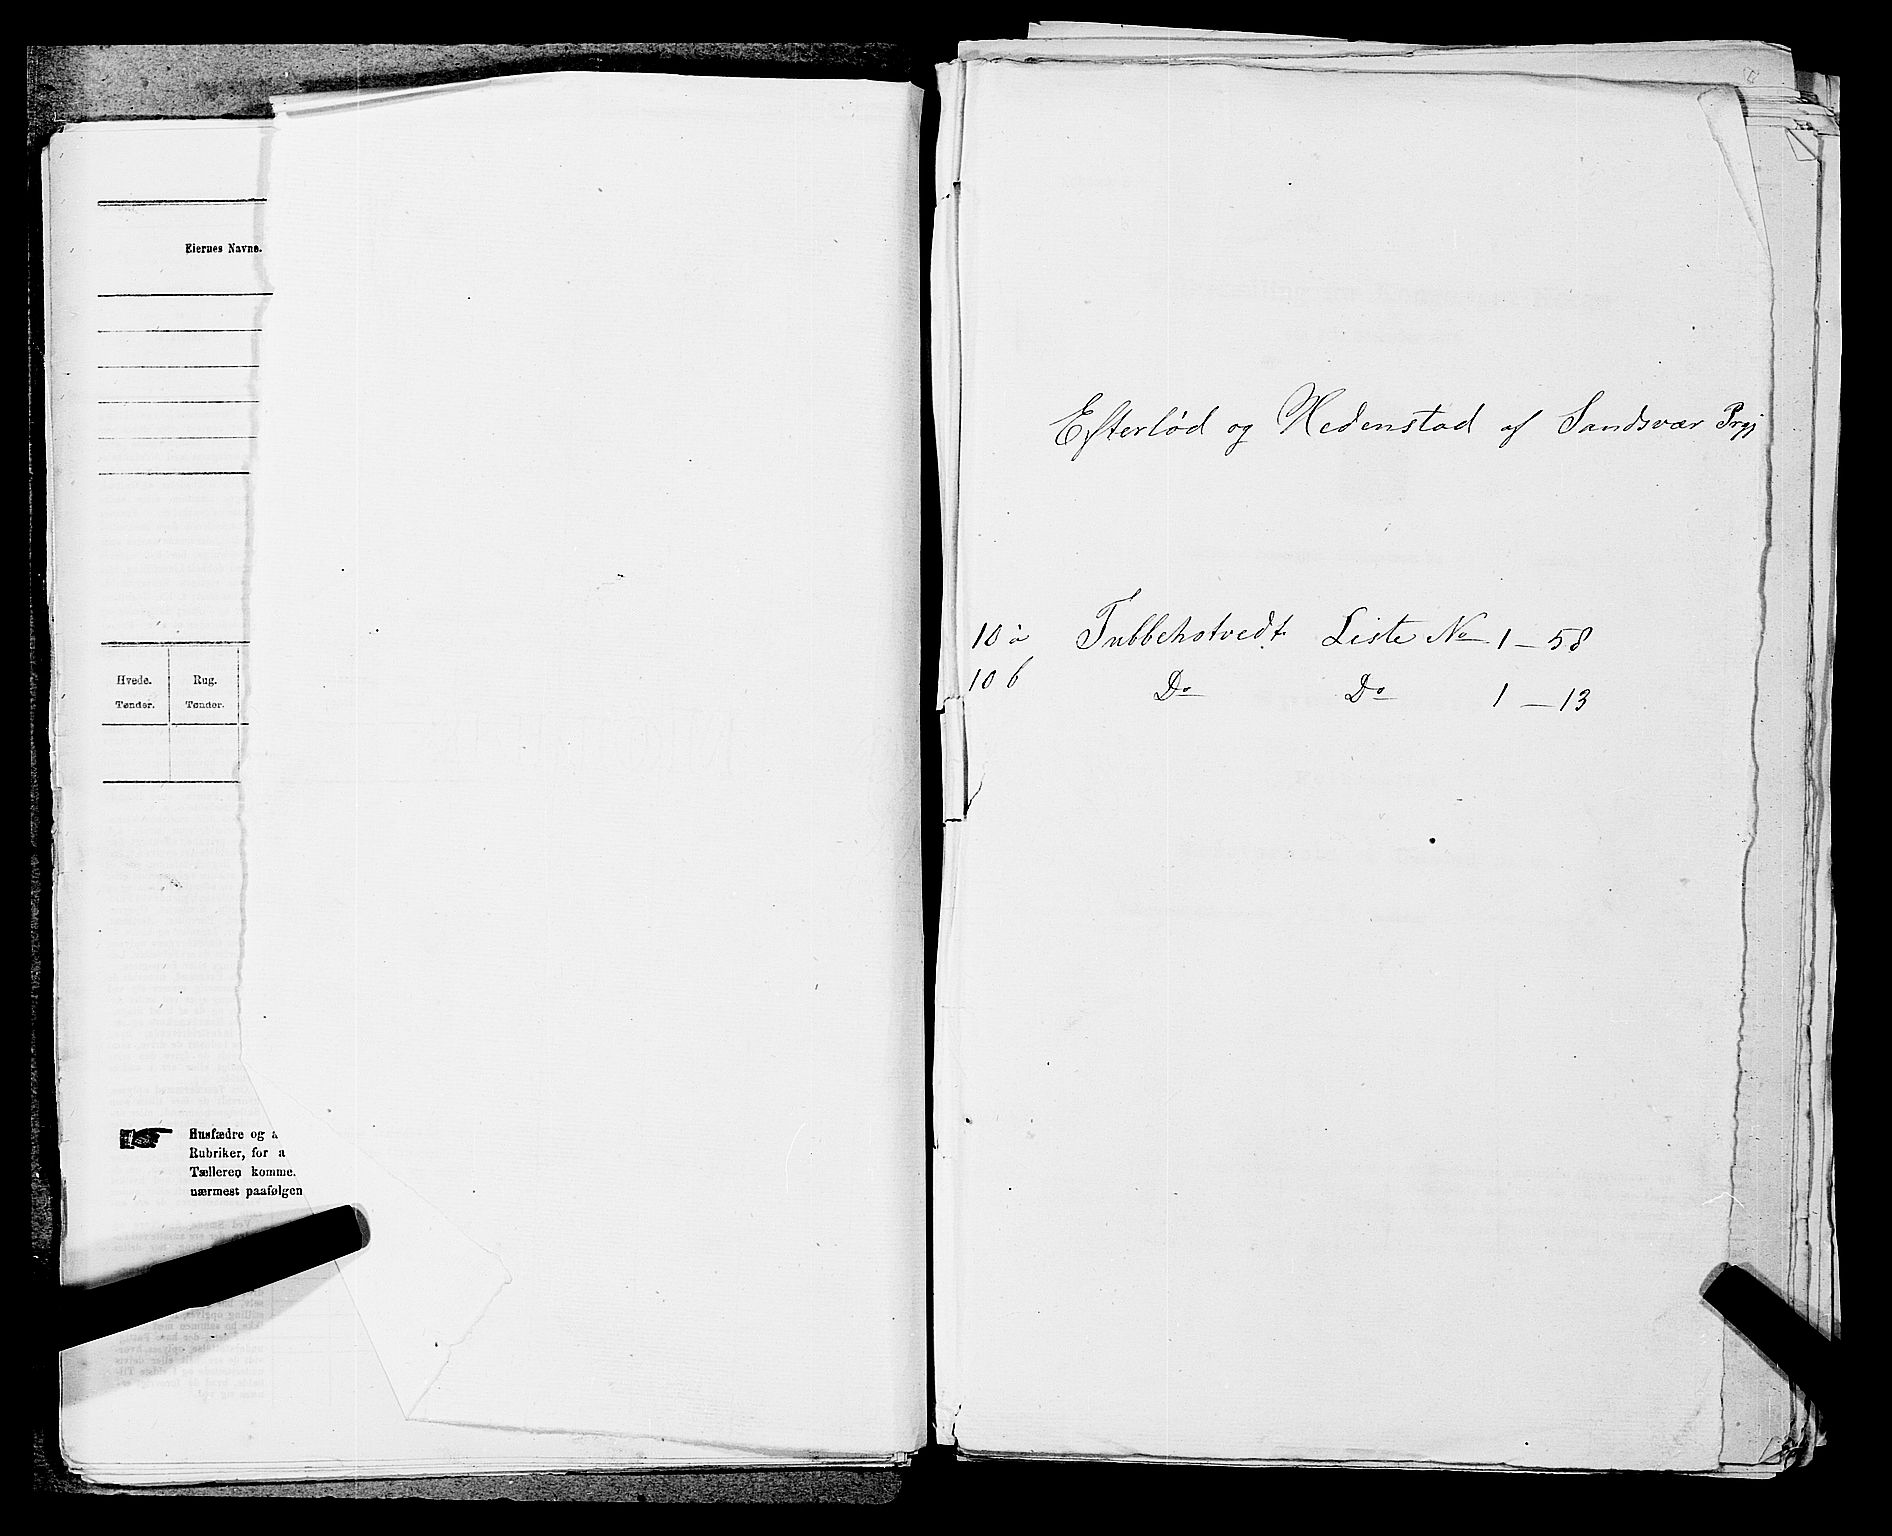 Eiernes Navne.
Hvede. Rug.
Tønder. Tønder.
Husfædre og a
Rubriker, for a
Tælleren komme.
nærmest paafølgen
Efterlød og Hedenstad af Sandsvær Prgj
10 a Tubbehstvedt. Liste No 1 – 58
10 b Do Do 1 – 13